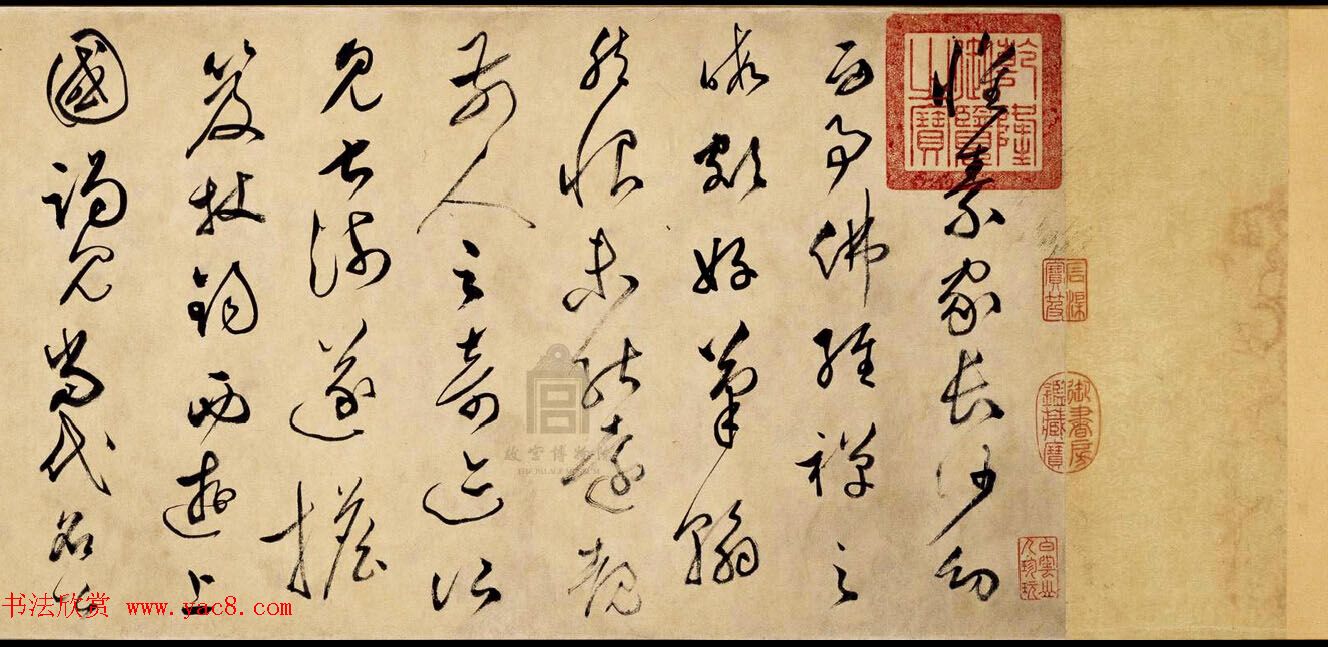 乾隆御覽之寶
石渠寶笈
御書房鑑藏寶
懷素家長沙幼
而事佛經禪之
暇頗好筆翰
然恨未能遠覩
前人之奇迹所
見甚淺遂擔
笈杖錫西遊上
國謁見當代名公
故宫博物院
THE PALACE MUSEUM
书法欣赏 www.yac8.com